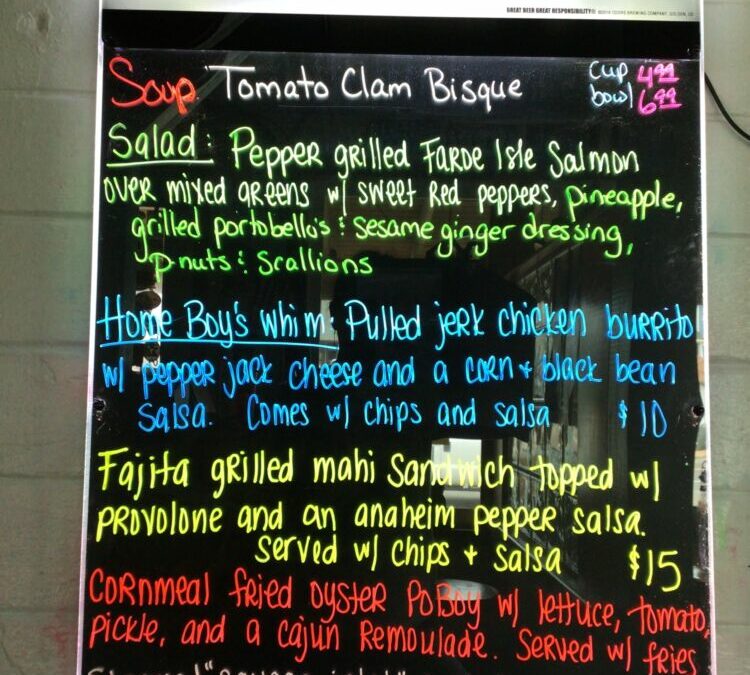 GREAT BEER GREAT RESPONSIBILITY® ©2014 COORS BREWING COMPANY, GOLDEN, CO
Soup Tomato Clam Bisque cup 4.99
bowl 6.99
Salad: Pepper grilled Faroe Isle Salmon
over mixed greens w/ sweet Red peppers, pineapple,
grilled portobello's & sesame ginger dressing,
p-nuts & Scallions
Home Boy's whim: Pulled jerk chicken burrito
w/ pepper jack cheese and a corn + black bean
Salsa. Comes w/ chips and salsa $10
Fajita grilled mahi Sandwich topped w/
provolone and an anaheim pepper salsa.
Served w/ chips + salsa $15
Cornmeal fried oyster PoBoy w/ lettuce, tomato,
pickle, and a cajun Remoulade. Served w/ fries